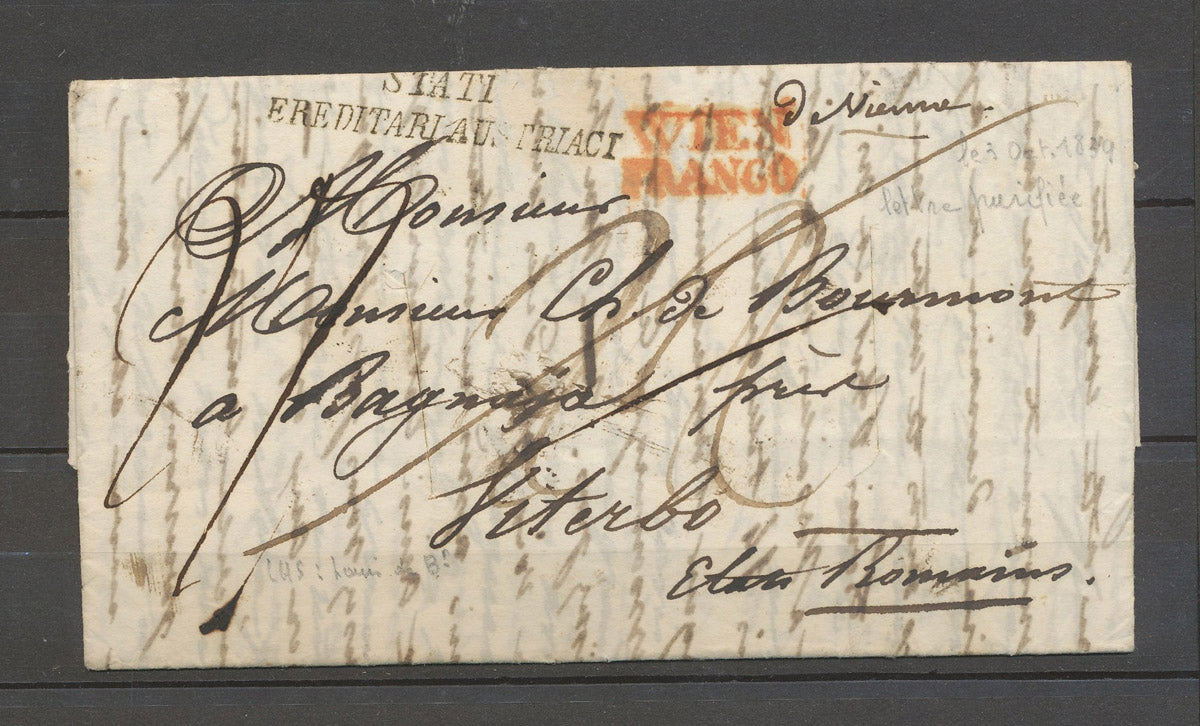 STATI
EREDITARI AUSTRIACI
WIEN
FRANCO
d Vienne
le 3 Oct. 1834
lettre purifiée
A Monsieur
Monsieur Ch. de Bourmont
a Bagnaja près
Viterbo
Etats Romains.
LAS : Louis de B.